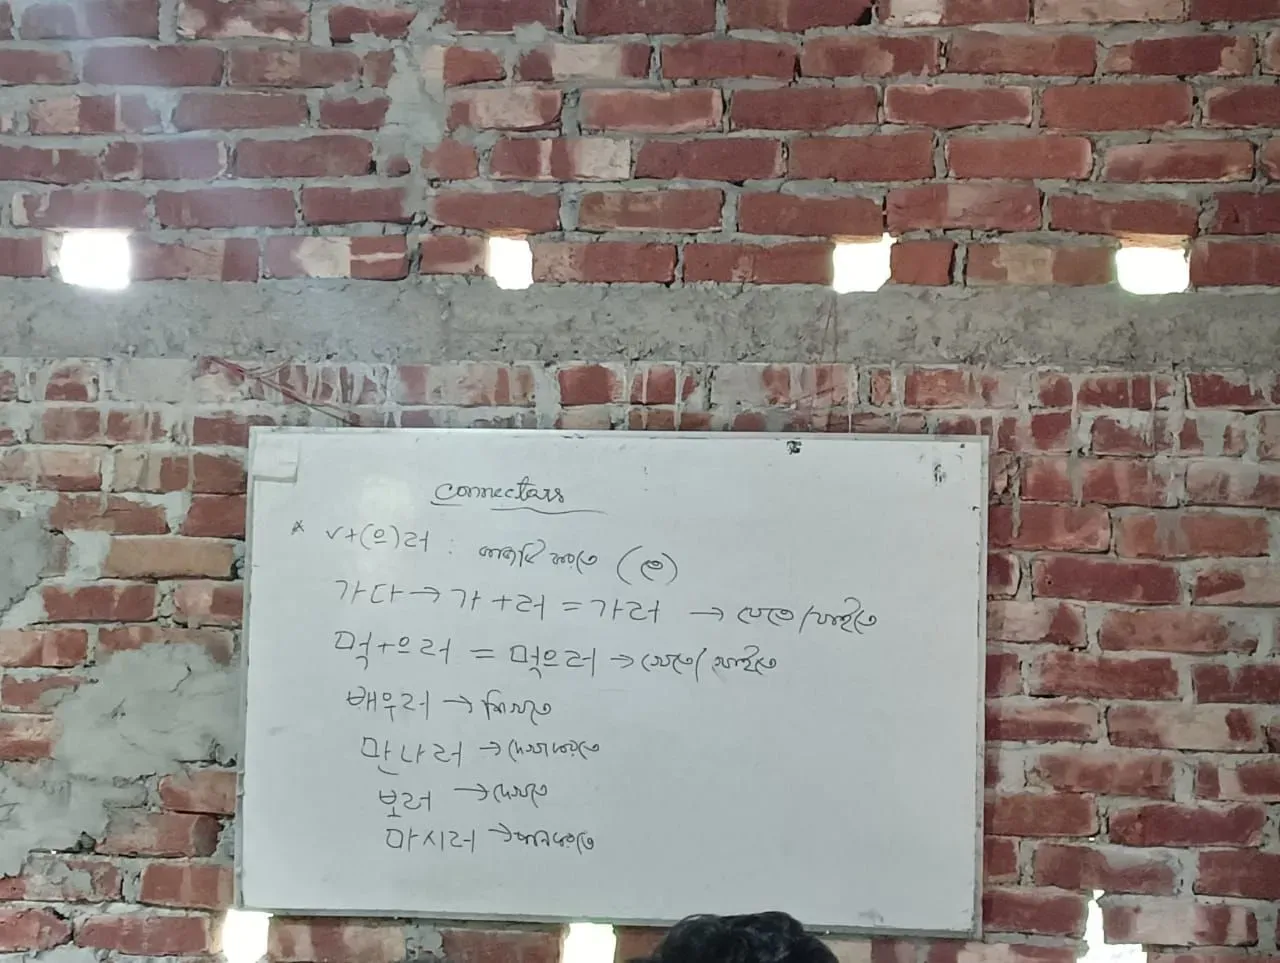 Connectars
* V+(으)러 : কাজটি করতে (তে)
가다 → 가 + 러 = 가러 → যেতে/যাইতে
먹+으러 = 먹으러 → খেতে/খাইতে
배우러 → শিখতে
만나러 → দেখাকরতে
보러 → দেখতে
마시러 → পানকরতে